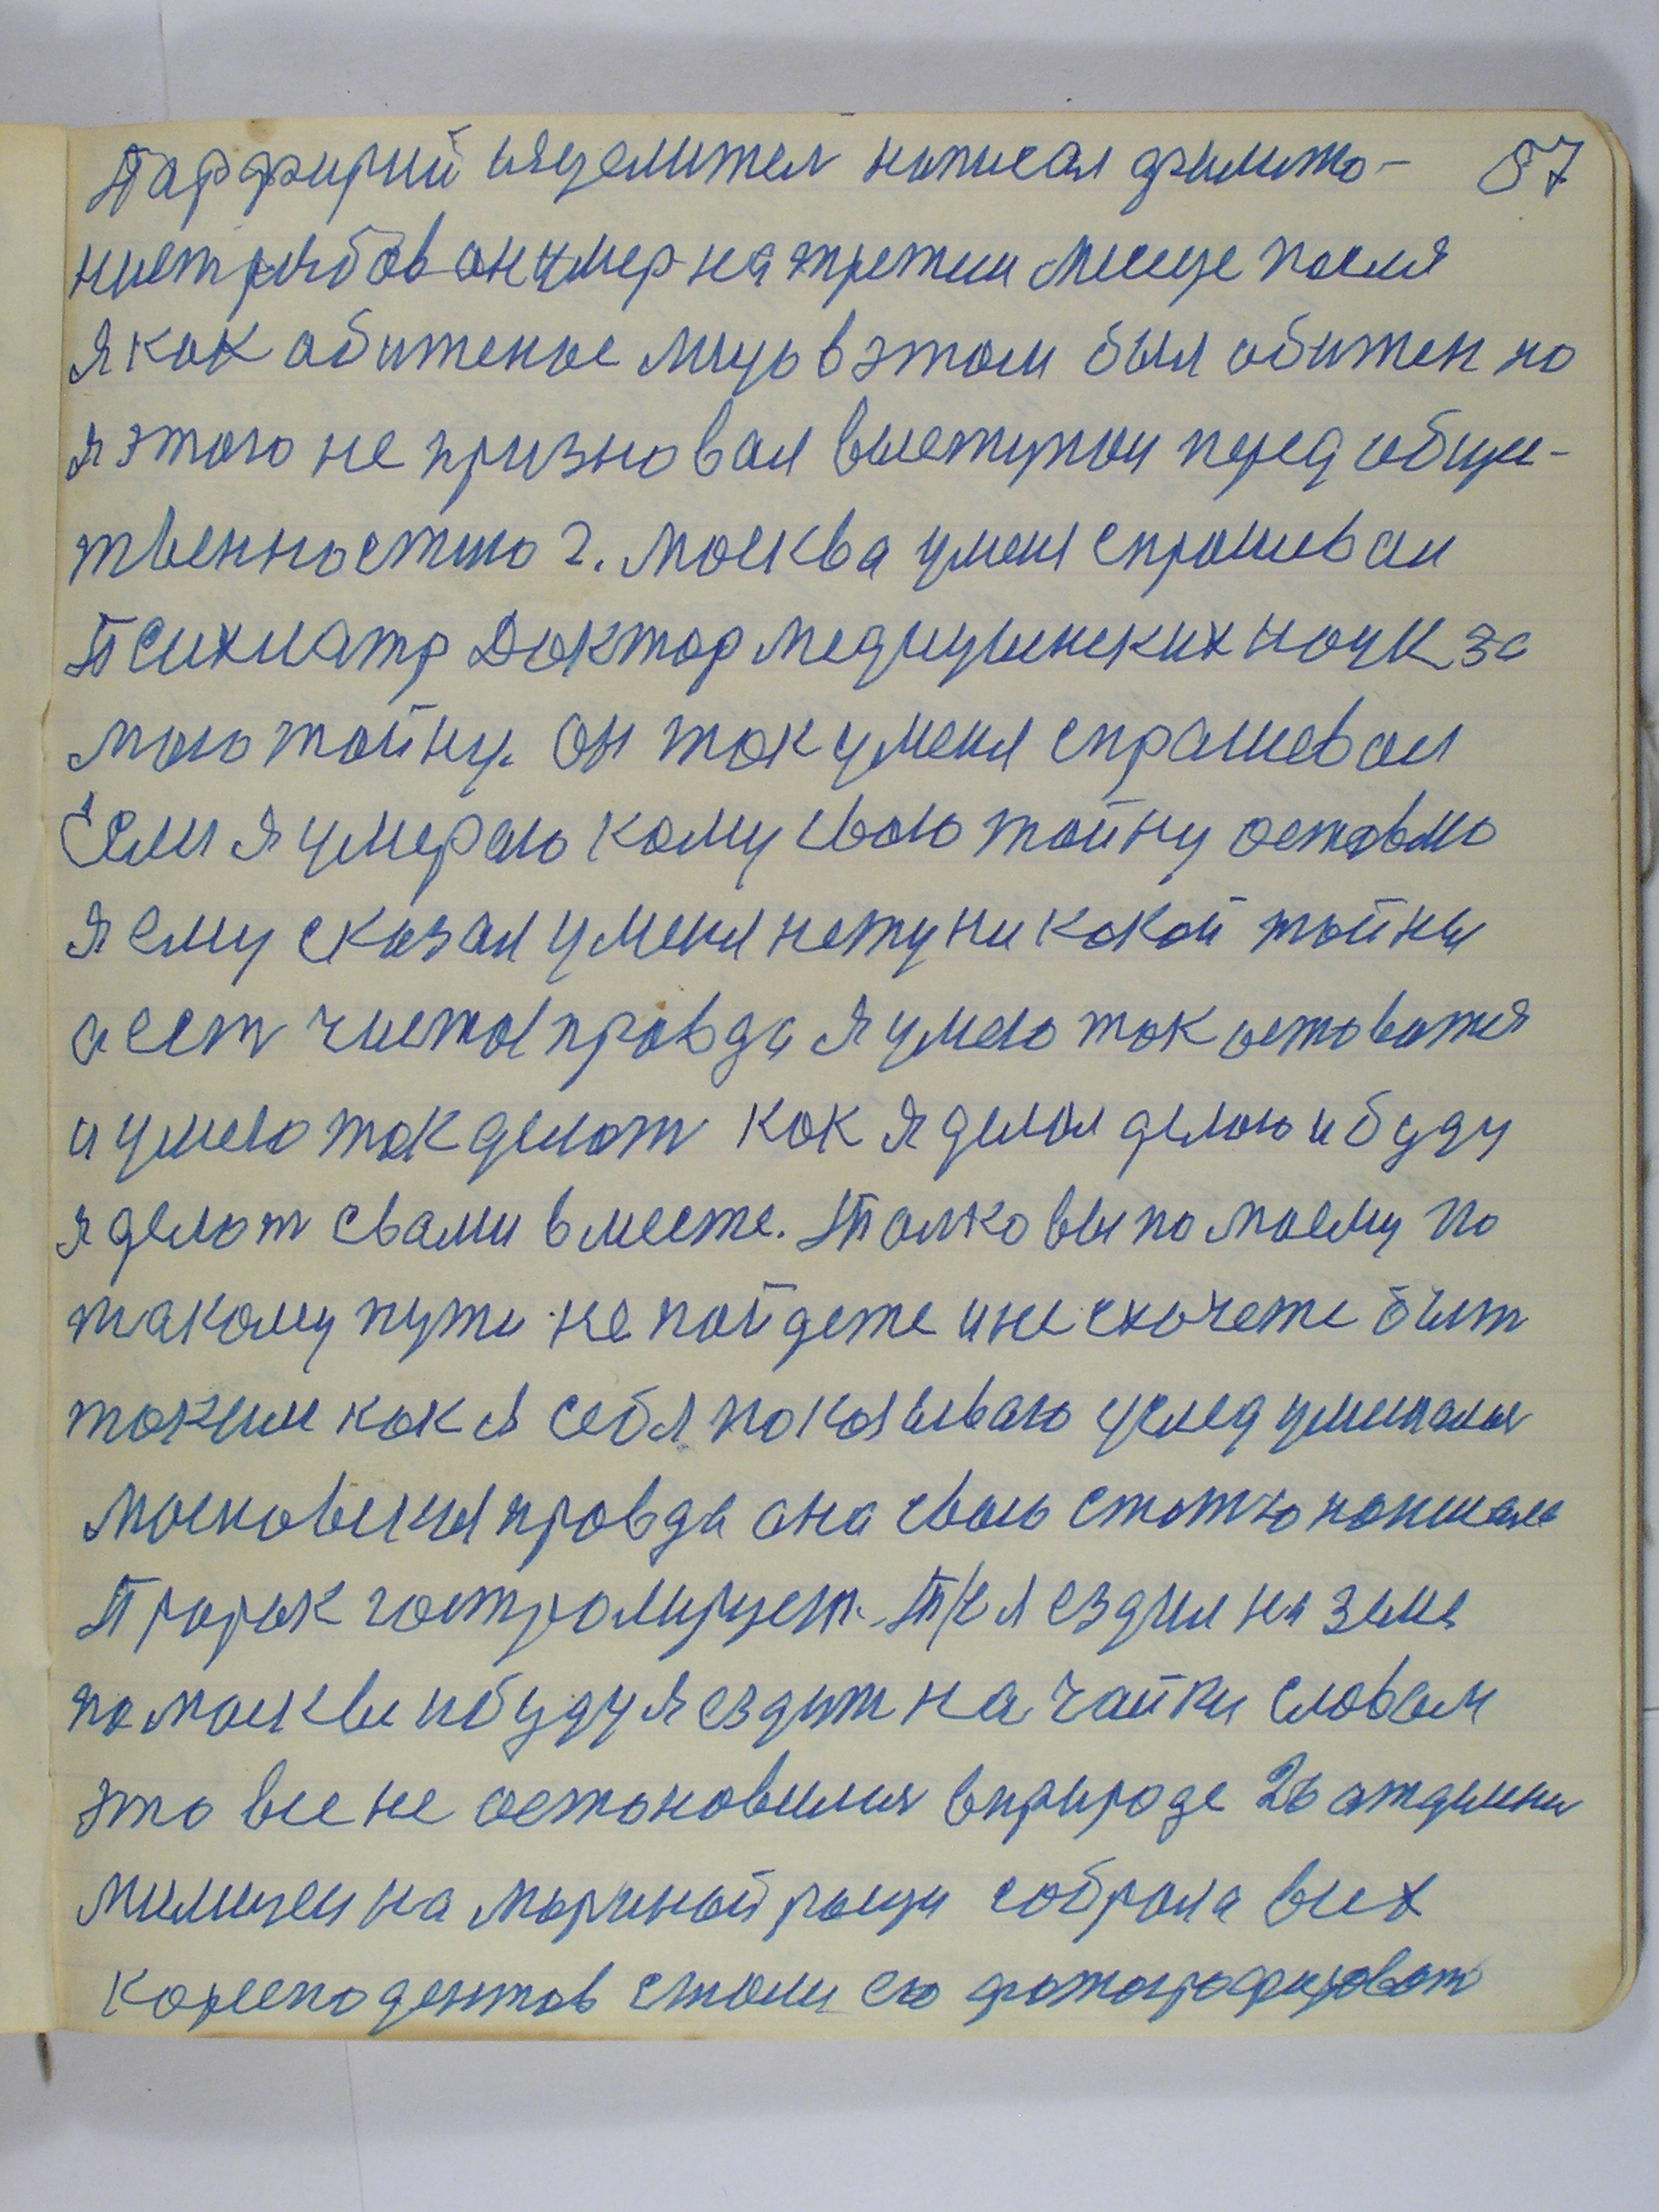 Парфирий изцелител написал филито- 87
нист рябов он умер на третии месеце посля
я как абиженое лицо в этом был обижен но
я этого не призновал выступал перед общи-
твенностию г. Москва уменя спрошивал
Психиатр Доктор медицинских наук за
мою тайну. Он так уменя спрашевал
Если я умераю кому свою тайну оставлю
я ему сказал уменя нету никокой тайны
а ест чистая правда я умею так оставатся
и умею так делат как я делал делаю и буду
я делат свами вместе. Толко вы по моему по
такому пути не пойдете и не схочете быт
таким как я себя показываю
Московская правда она свою статю написала
Пророк гостролирует. я ездил на зиме
по москве и буду я ездит на чайки словом
это все не остоновилися вприроде 26 атдилении
милицеи на марьиный рощи собрала всех
коресподентов стали ею фотографироват